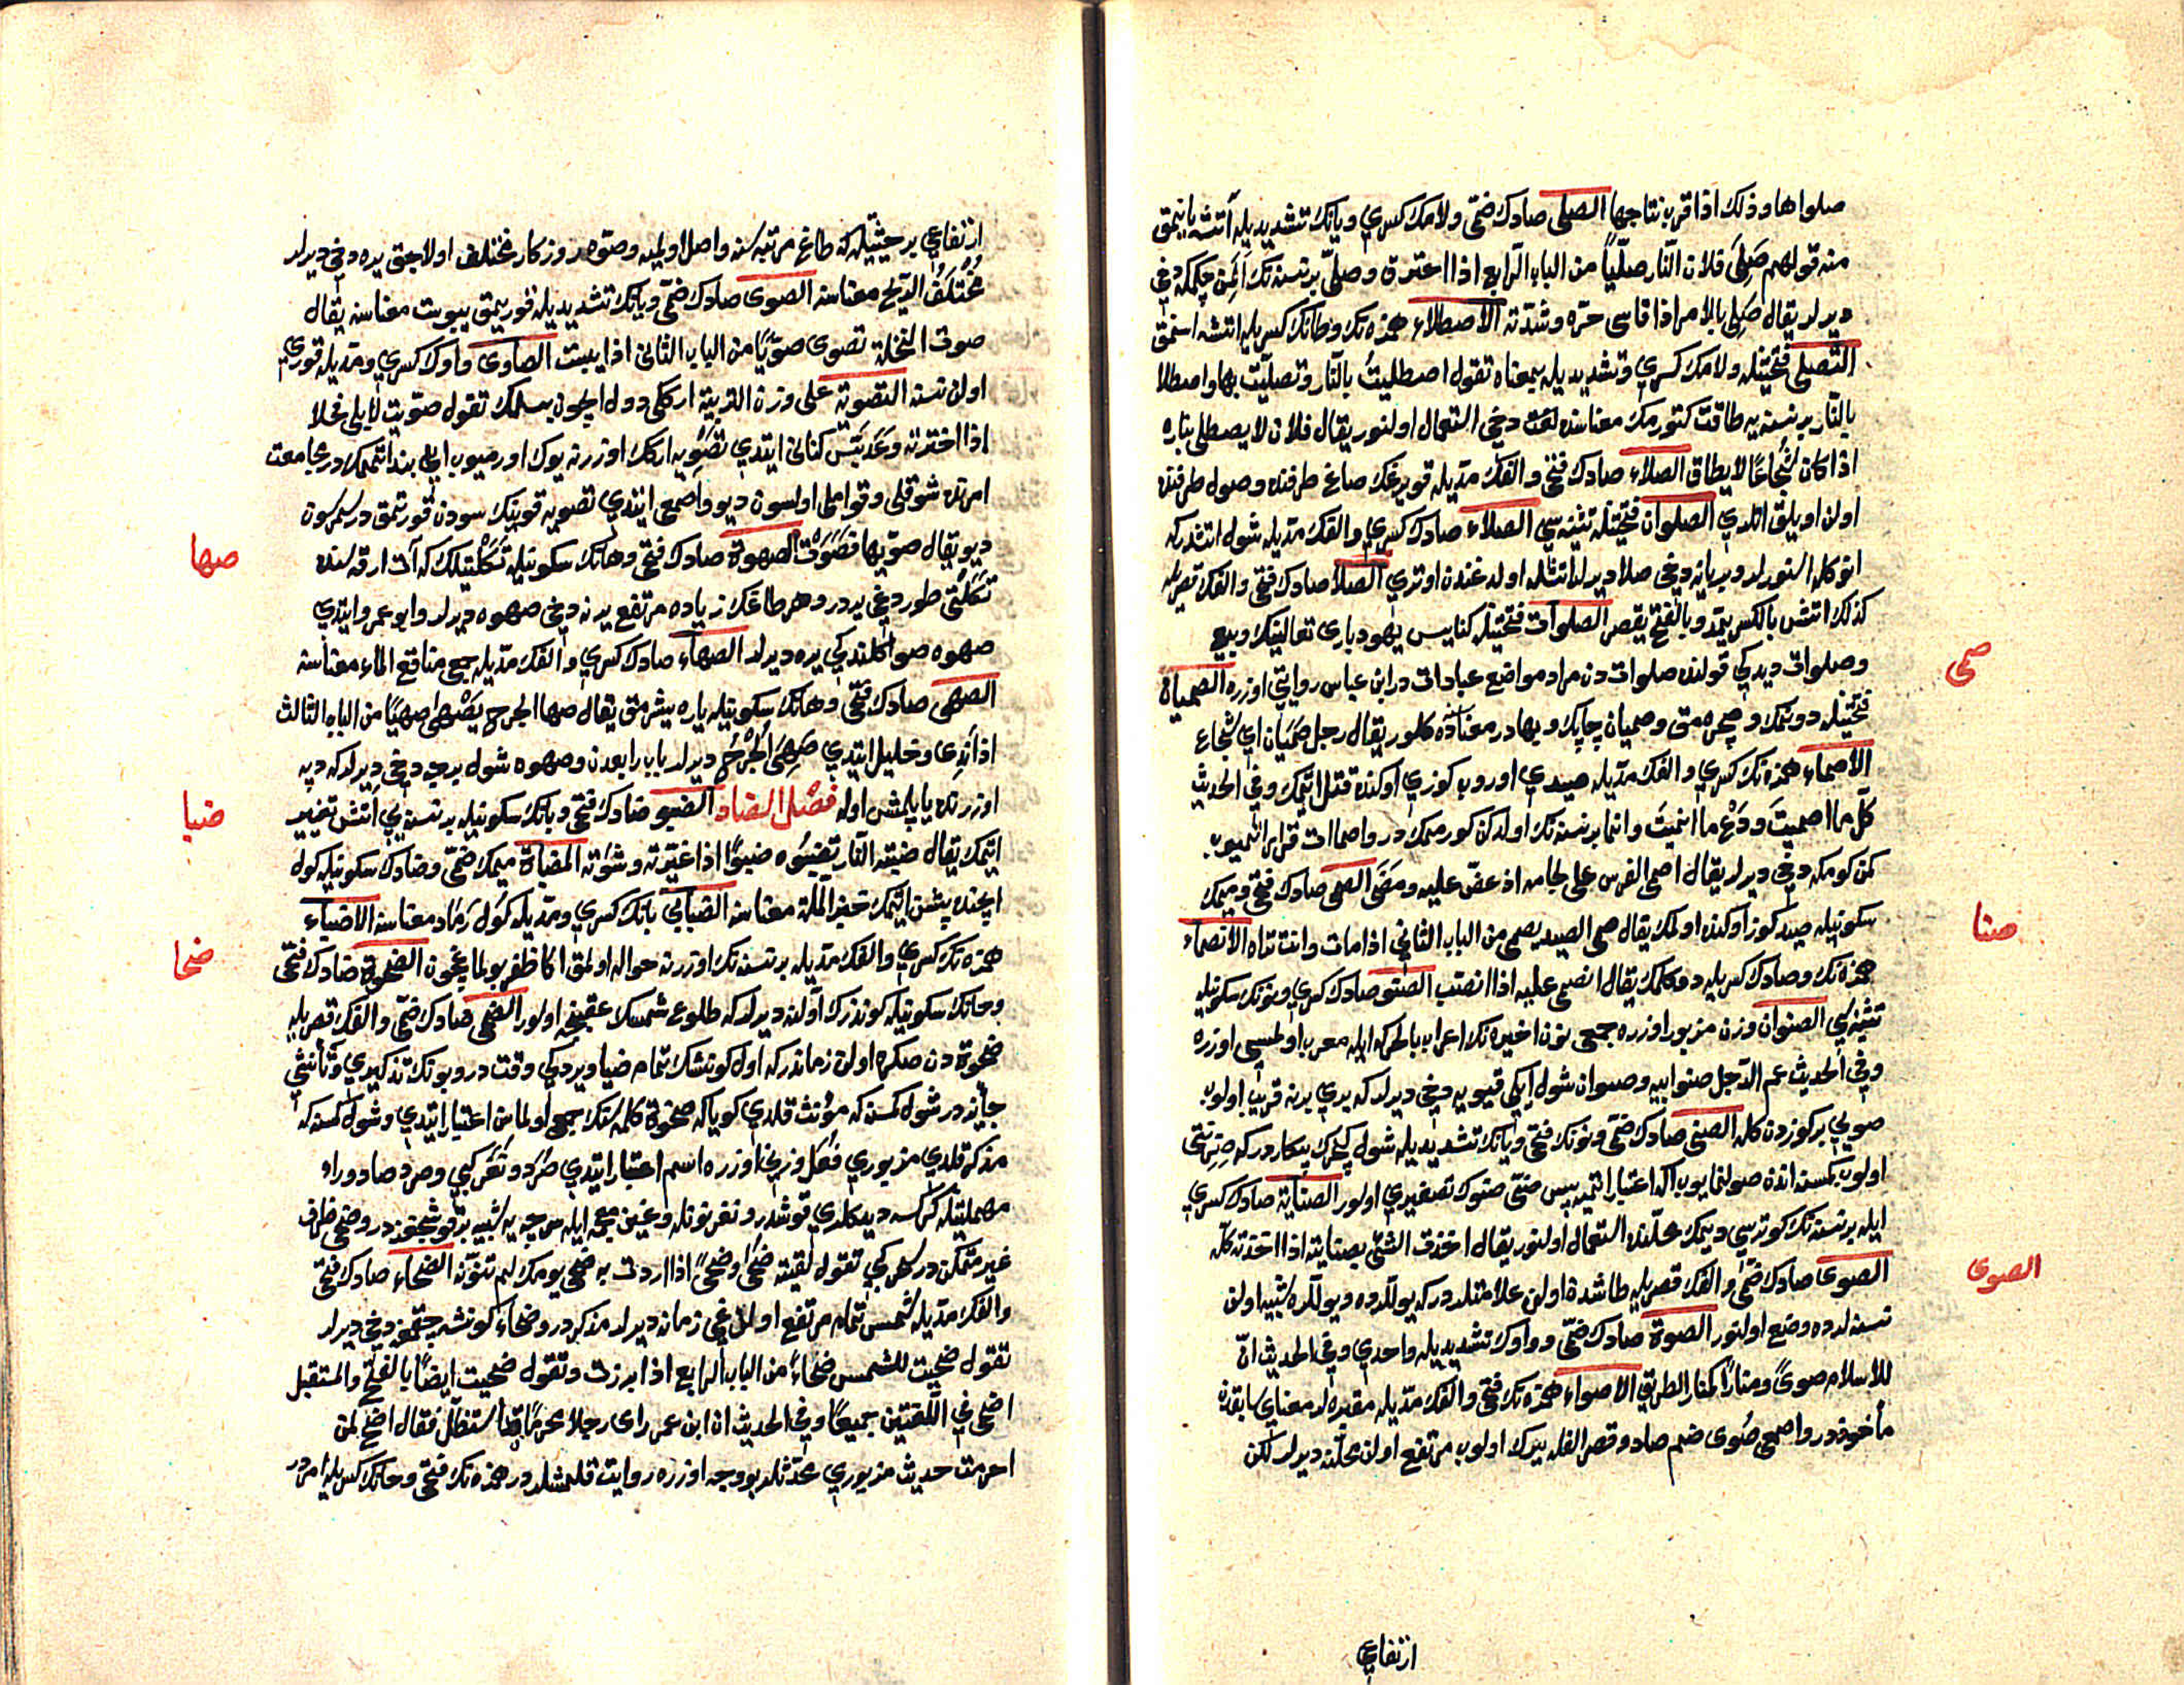 صلواها وذلك اذا قرب نتاجها الصلی صادك ضمّی ولامك كسری ویانك تشدیدیله آتشه یانمق
منه قولهم صَلِیَ فلان النّار صلّیاً من الباب الرابع اذا احترق وصلیّ بر نسنه نك المن چكمكه دخی
دیرلر یقال صَلِیَ بالامر اذا قاسی حرّه وشدّته الاصطلاء همزه نك وطانك كسریله اتشه اسنمق
التّصلی فتحتیله ولامك كسری وتشدیدیله بمعناه تقول اصطلیتُ بالنّار وتصلّیت بها واصطلا
بالنّار بر نسنه یه طاقت كتورمك معناسنده دخی استعمال اولنور یقال فلان لا یصطلی بناره
اذا كان شجاعًا لا یطاق الصلاء صادك فتحی والفك مدّیله قویرغك صاغ طرفنده وصول طرفنده
اولن اویلق اتلری الصلوان فتحتیله تثنیه سی الصلاء صادك كسری والفك مدّیله شول اتشدركه
انوكله اسنورلر وبریانه دخی صلا دیرلر اتشله اولدغندن اوتری الصلا صادك فتحی والفك قصریله
كذلك اتش بالكسر یمدّ وبالفتح یقصر الصلوات فتحتیله كنایس یهود باری تعالینك وبیع
وصلوات دیدكی قولنده صلوات دن مراد مواضع عبادات در ابن عباس روایتی اوزره الصمیان
صمی
فتحتیله دونمك وصچره مق وصمیان چاپك وبهادر معناسنه كلور یقال رجل صَمَیَان ای شجاع
الاصماء همزه نك كسری والفك مدّیله صیدی اوروب كوزی اوكنده قتل اتمك وفی الحدیث
كلّ ما اصمیتَ ودَعْ ما انمیتَ
كمن كومكه دخی دیرلر یقال اصمی الفرس علی لجامه اذ عضّ علیه ومَضَی الصمی صادك فتحی ومیمك
سكونیله صید كوز اوكنده اولمك یقال صمی الصید یصمی من الباب الثانی اذا مات وانت تراه الانصماء
صنا
همزه نك وصادك كسریله دوكلمك یقال انصمی علیه اذا انصبّ الصنو صادك كسری ونونك سكونیله
تثنیه سی الصنوان وزن مزبور اوزره جمعی نون اخیره نك اعرابی بالحركه ایله معرب اولمسی اوزره
وفی الحدیث عم الرّجل صنو ابیه وصنوان شول ایكی قیویه دخی دیرلر كه بری برنه قریب اولوب
صولی بر كوزدن كله الصنی صادك ضمّی ونونك فتحی ویانك تشدیدیله شول كچیرك پیكاردر كه
اولوب كمسنه اندن صو لنمایوب اكا اعتبار اتمیه پس ضمّی صنوك تصغیری اولور الصنایة صادك كسری
ایله بر نسنه نك كوتریسی دیمك محلّنده استعمال اولنور یقال اخذت الشیّ بصنایته اذا اخذته كلّه
الصوی صادك ضمّی والفك قصریله طاشدن اولن علامتلردركه یوللرده دیوللرده شبیه اولن
الصوی
نسنه لرده وضع اولنور الصوة صادك ضمّی وواوك تشدیدیله واحدی وفی الحدیث انّ
للاسلام صویً ومنارًا كمنار الطریق الاصواء همزه نك فتحی والفك مدّیله مقبره لر معنای سابقدن
مأخوذدر واصمعی صُوی ضم صاد وقصر الفله یرك اولوب مرتفع اولن محلّنه دیرلر لكن
ارتفاعی
ارتفاعی بر حیثیله كه طاغ مرتبه سنه واصل اولمیه وصوّه روزكار مختلف اولاجق یره دخی دیرلر
مُخْتَلَفُ الرّیح معناسنه الصوی صادك ضمّی ویانك تشدیدیله قوریمق یبوست معناسنه یقال
صوت النخلة تصوی صوّیًا من الباب الثانی اذا یبست الصاوی واوك كسری ومدّیله قوری
اولن نسنه التصویة علی وزن التربیة اركلی دول ایچون بسلمك تقول صوّیت لابلی فحلا
اذا اخترته وعَدَبَّس كنانی ایتدی تصویه اركك اوزرنه یوك اورمیوب ایلی بند اتمكدر مجامعت
امرنده شوقلی وقواملی اولسون دیو واصمعی ایتدی تصویه قویینك سودن قورتمق در سمرسون
دیو یقال صوّیها فَصَوَتْ الصهوة صادك فتحی وهانك سكونیله تكلتیلك كه آت ارقه سنده
صها
تكلتی طوردغی یردر وهر طاغك زیاده مرتفع یرنه دخی صهوه دیرلر وابو عمرو ایتدی
صهوه صو اكلندكی یره دیرلر الصهاء صادك كسری والفك مدّیله جمعی مناقع الماء معناسنه
الصهی صادك فتحی وهانك سكونیله یاره شیشمق یقال صها الجرح یَصْهٰی صهیًا من الباب الثالث
اذا نَدِیَ وخلیل ایتدی صَهِیَ الْجُرْحُ دیرلر باب رابعدن وصهوه شول برجه دخی دیرلر كه دپه
اوزرنده یاپلمش اوله فصل الضاد الضبو ضادك فتحی وبانك سكونیله بر نسنه یی اتش تغییر
ضبا
اتمك یقال ضبته النّار تضبُوه ضبوًا اذا غیّرته وشوَته المضباة میمك ضمّی وضادك سكونیله كول
ایچنده پشن اتمك خبز الملّة معناسنه الضبابی بانك كسری ومدّیله كول رماد معناسنه الاضباء
همزه نك كسری والفك مدّیله بر نسنه نك اوزرنه حواله اولمق اكا ظفر بولماغیچون الضحوة ضادك فتحی
ضحا
وحانك سكونیله كوندزك اوّلنه دیرلر كه طلوع شمسك عقبنجه اولور الضحی ضادك ضمّی والفك قصریله
ضحوة دن صكره اولن زماندر كه اول كونشك تمام ضیا ویردكی وقت در وبونك تذكیری وتأنیثی
جایزدر شول كمسنه كه مؤنّث قلدی كویا كه ضحوة كلمه سنك جمعی اولماسن اعتبار ایتدی وشول كمسنه كه
مذكّر قلدی مزبوری فُعَل وزنی اوزره اسم اعتبار ایتدی صُرَد ونُغَر كبی وصرد صاد وراء
مهملتیله كركسه دیدكلری قوشدر ونغر نونله وغین معجمه ایله سرچه یه شبیه بر قوشجغزدر وضحی ظرف
غیر متمكّن در سحر كبی تقول لقیته ضحًی وضحًی اذا اردت به ضحی یومك لم تنوّنه الضحاء ضادك فتحی
والفك مدّیله شمس تمام مرتفع اولدغی زمانه دیرلر مذكّر در وضحاء كونشه چقمغه دخی دیرلر
تقول ضحیت للشمس ضحاءً من الباب الرابع اذا برزت وتقول ضحیت ایضًا بالفتح والمستقبل
اضحی فی اللّغتین جمیعًا وفی الحدیث ان ابن عمر رای رجلا محرمًا قد استظلّ فقال اضح لمن
احرمت حدیث مزبوری محدّثلر بو وجه اوزره روایت قلمشلردر همزه نك فتحی وحانك كسریله امردر